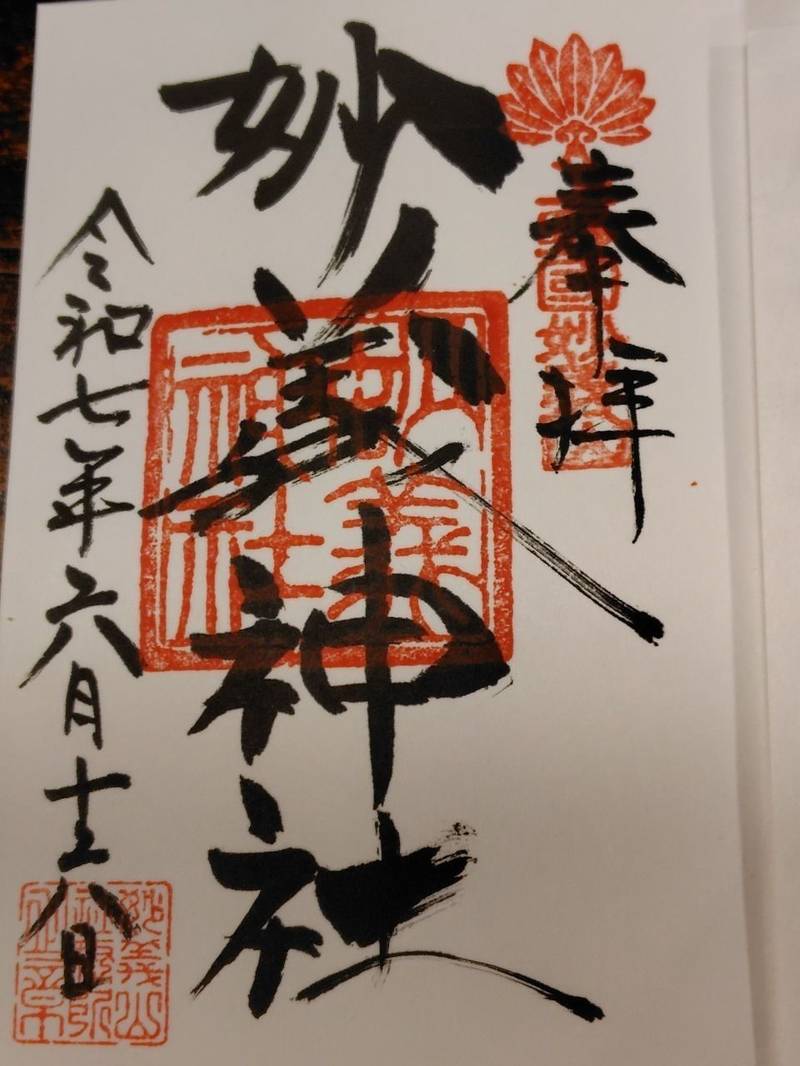 奉拝
妙義神社
妙義
神社
令和七年六月十六日
妙義山
社務所